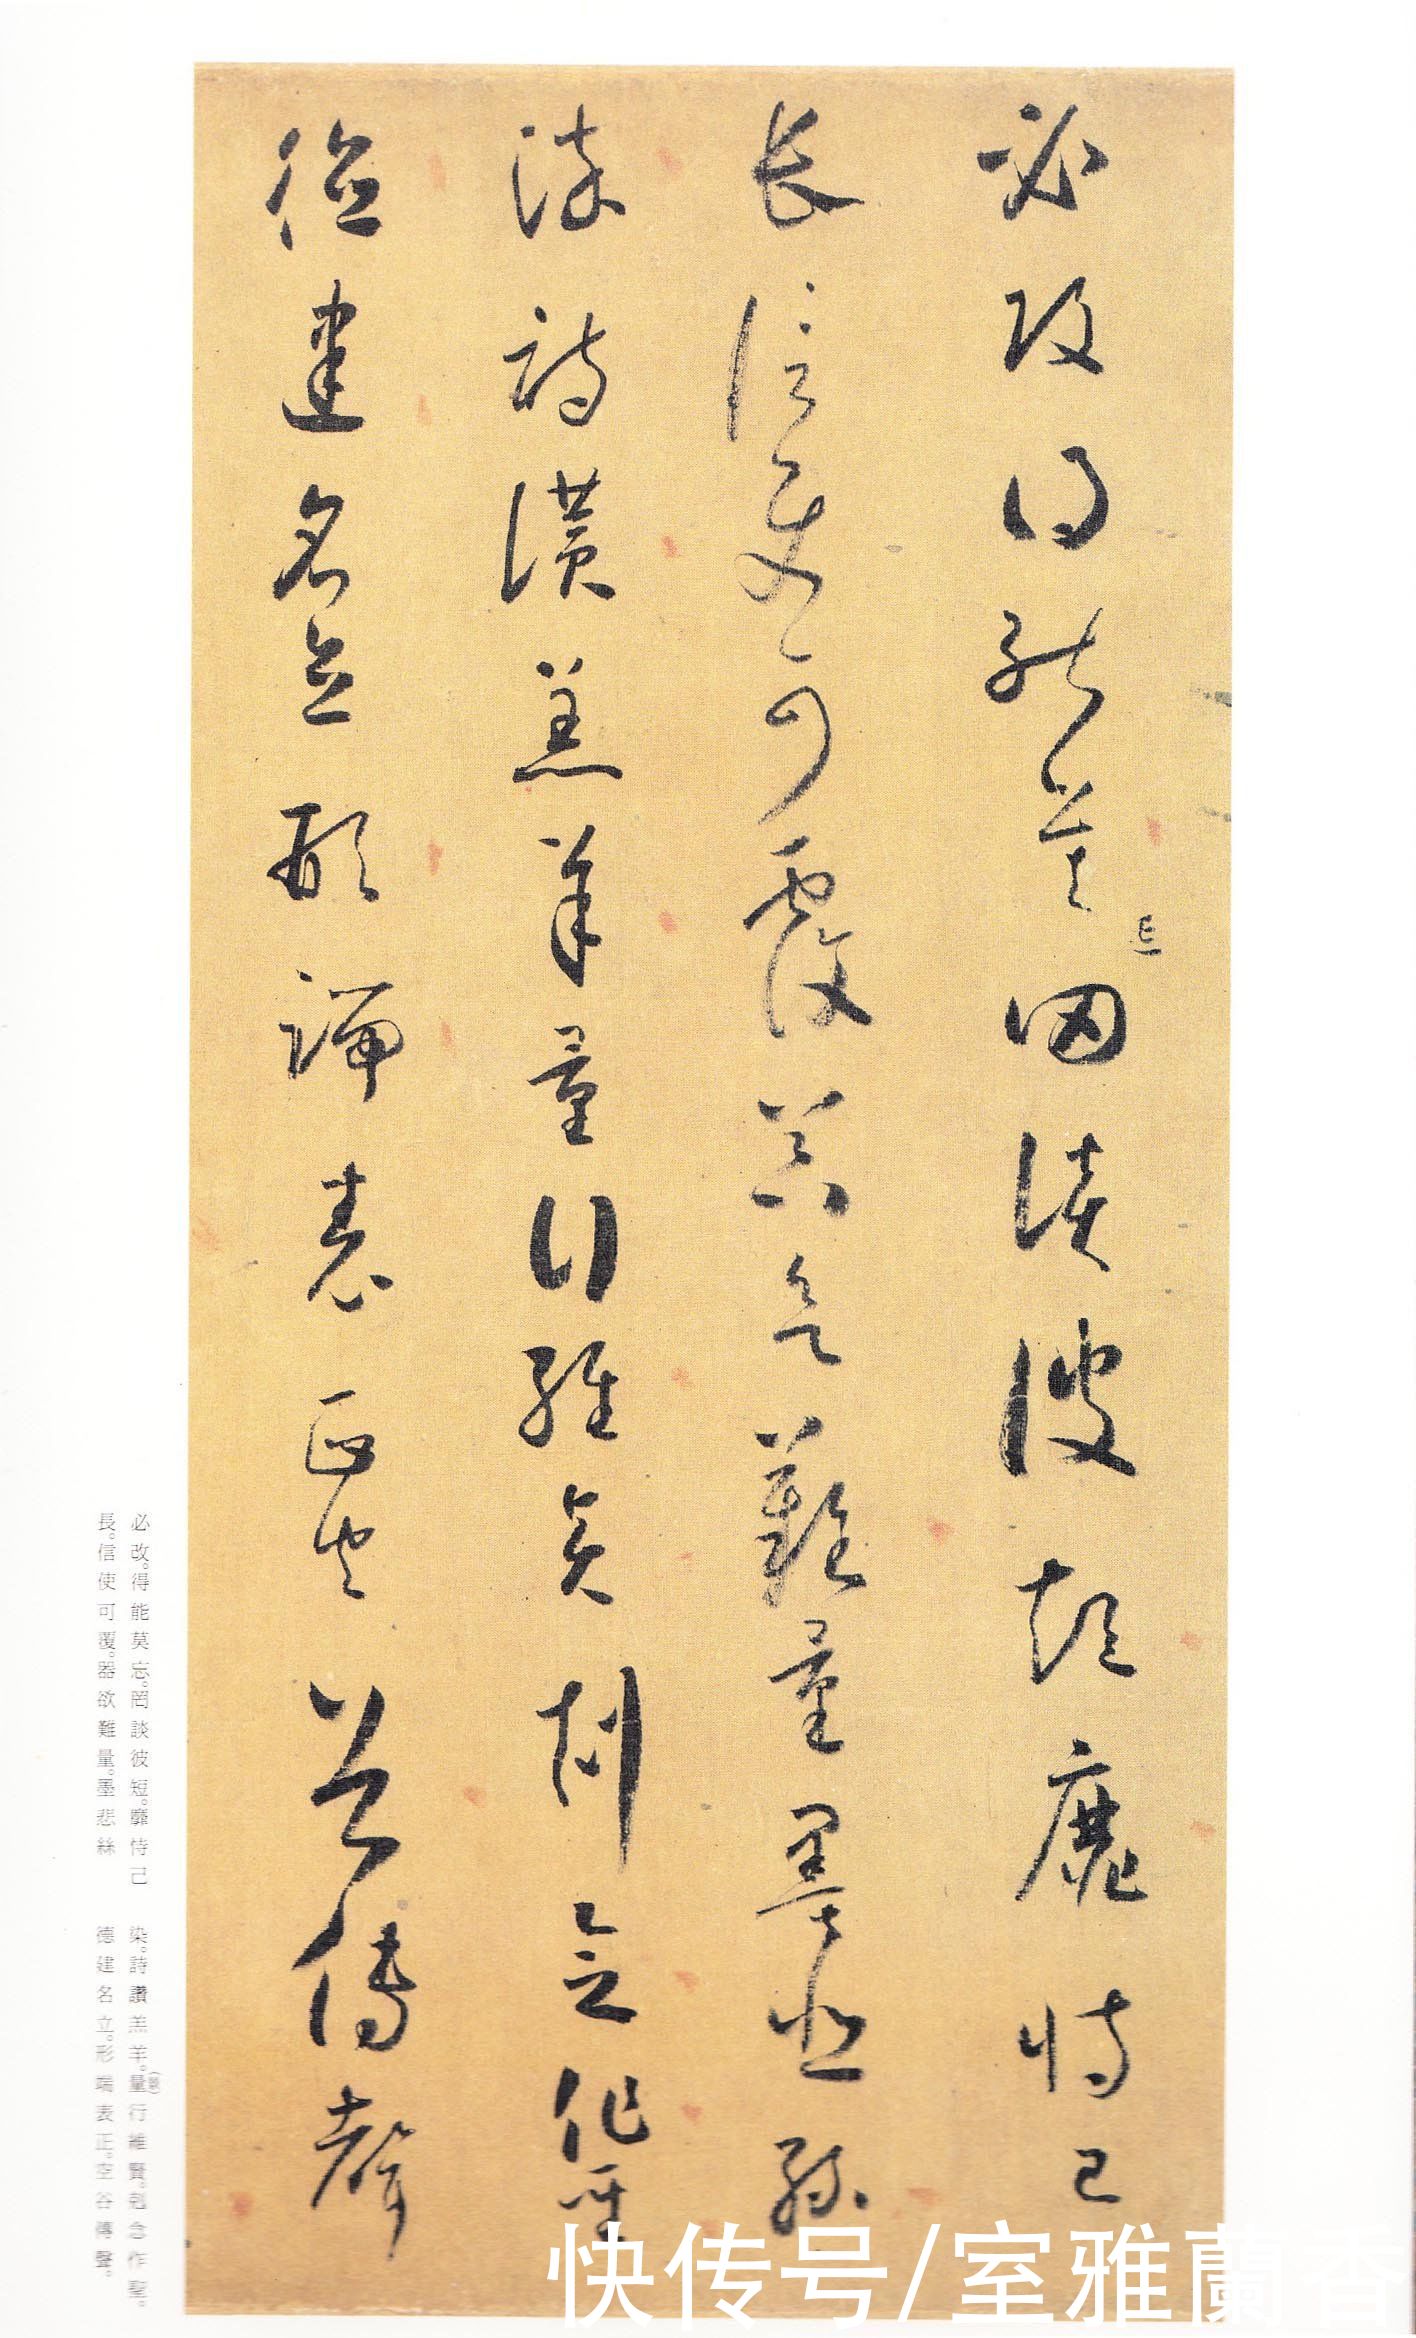 必改得能莫忘罔談彼短靡恃己
長信使可覆器欲難量墨悲絲
染詩讚羔羊量行維賢剋念作聖
德建名立形端表正空谷傳聲
必改。得能莫忘。罔談彼短。靡恃己
長。信使可覆。器欲難量。墨悲絲
染。詩讚羔羊。量(景)行維賢。剋念作聖。
德建名立。形端表正。空谷傳聲。
快传号/室雅蘭香